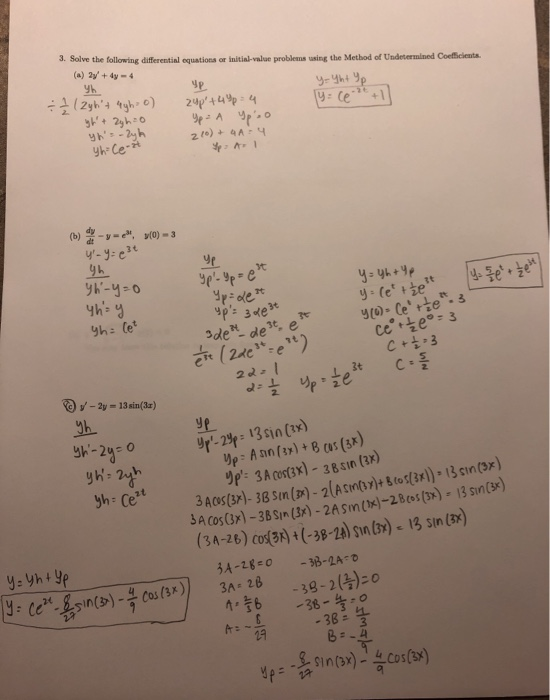 3. Solve the following differential equations or initial-value problems using the Method of Undetermined Coefficients.
(a) 2y' + 4y = 4
yh
÷ 1/2 (2yh' + 4yh = 0)
yh' + 2yh = 0
yh' = -2yh
yh = Ce^-2t
yp
2yp' + 4yp = 4
yp = A yp' = 0
2(0) + 4A = 4
yp = A = 1
y = yh + yp
y = Ce^-2t + 1
(b) dy/dt − y = e^3t, y(0) = 3
y' - y = e^3t
yh
yh' - y = 0
yh' = y
yh = Ce^t
yp
yp' - yp = e^3t
yp = αe^3t
yp' = 3αe^3t
3αe^3t - αe^3t = e^3t
1/e^3t (2αe^3t = e^3t)
2α = 1
α = 1/2 yp = 1/2 e^3t
y = yh + yp
y = Ce^t + 1/2 e^3t
y(0) = Ce^t + 1/2 e^3t = 3
Ce^0 + 1/2 e^0 = 3
C + 1/2 = 3
C = 5/2
y = 5/2 e^t + 1/2 e^3t
(c) y' − 2y = 13 sin(3x)
yh
yh' - 2y = 0
yh' = 2yh
yh = Ce^2t
yp
yp' - 2yp = 13 sin(3x)
yp = A sin(3x) + B cos(3x)
yp' = 3A cos(3x) - 3B sin(3x)
3A cos(3x) - 3B sin(3x) - 2(A sin(3x) + B cos(3x)) = 13 sin(3x)
3A cos(3x) - 3B sin(3x) - 2A sin(3x) - 2B cos(3x) = 13 sin(3x)
(3A - 2B) cos(3x) + (-3B - 2A) sin(3x) = 13 sin(3x)
3A - 2B = 0
3A = 2B
A = 2/3 B
A = - 8/27
-3B - 2A = 0
-3B - 2(2/3) = 0
-3B - 4/3 = 0
-3B = 4/3
B = - 4/9
yp = - 8/27 sin(3x) - 4/9 cos(3x)
y = yh + yp
y = Ce^2t - 8/27 sin(3x) - 4/9 cos(3x)